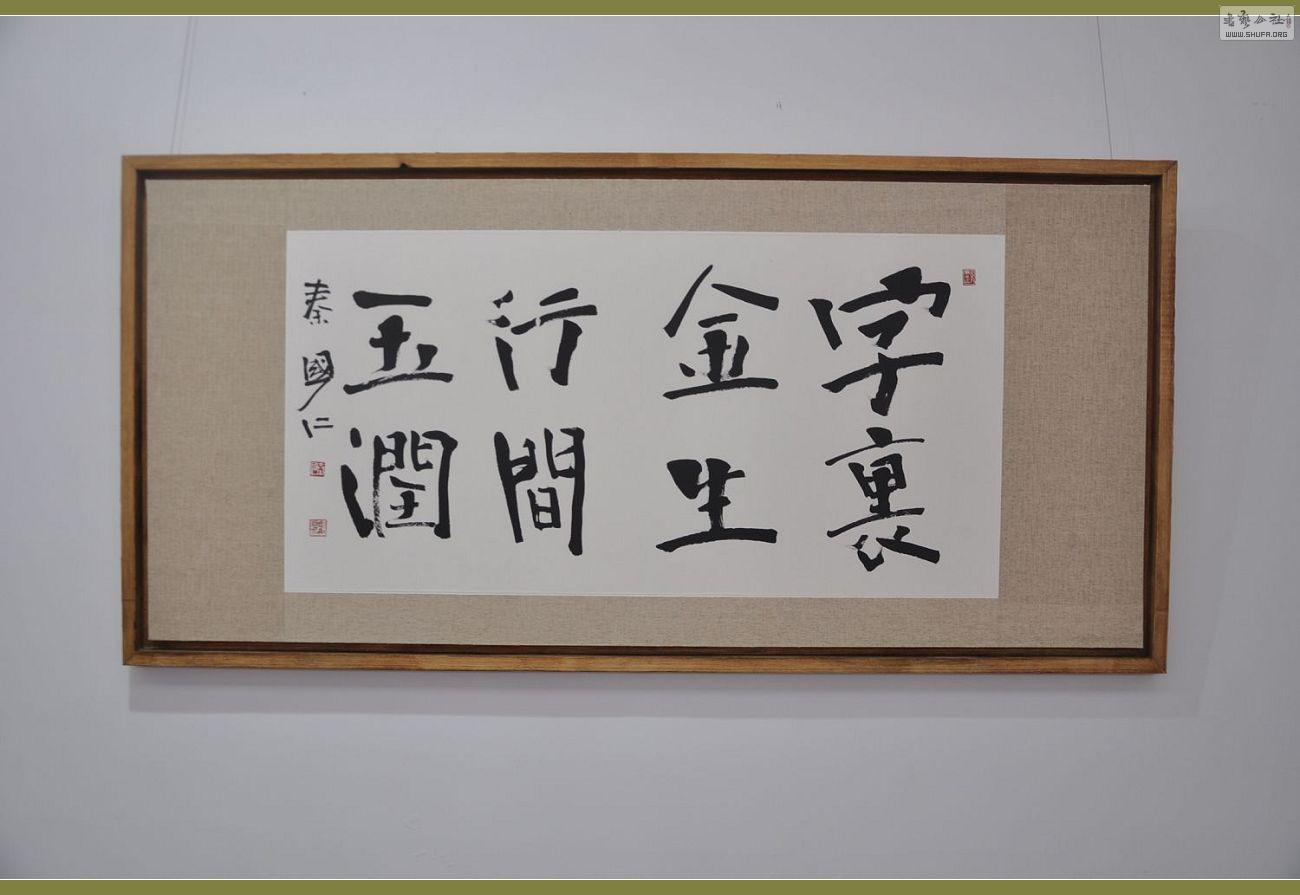 字裏
金生
行間
玉潤
秦國仁
書藝公社
WWW.SHUFA.ORG